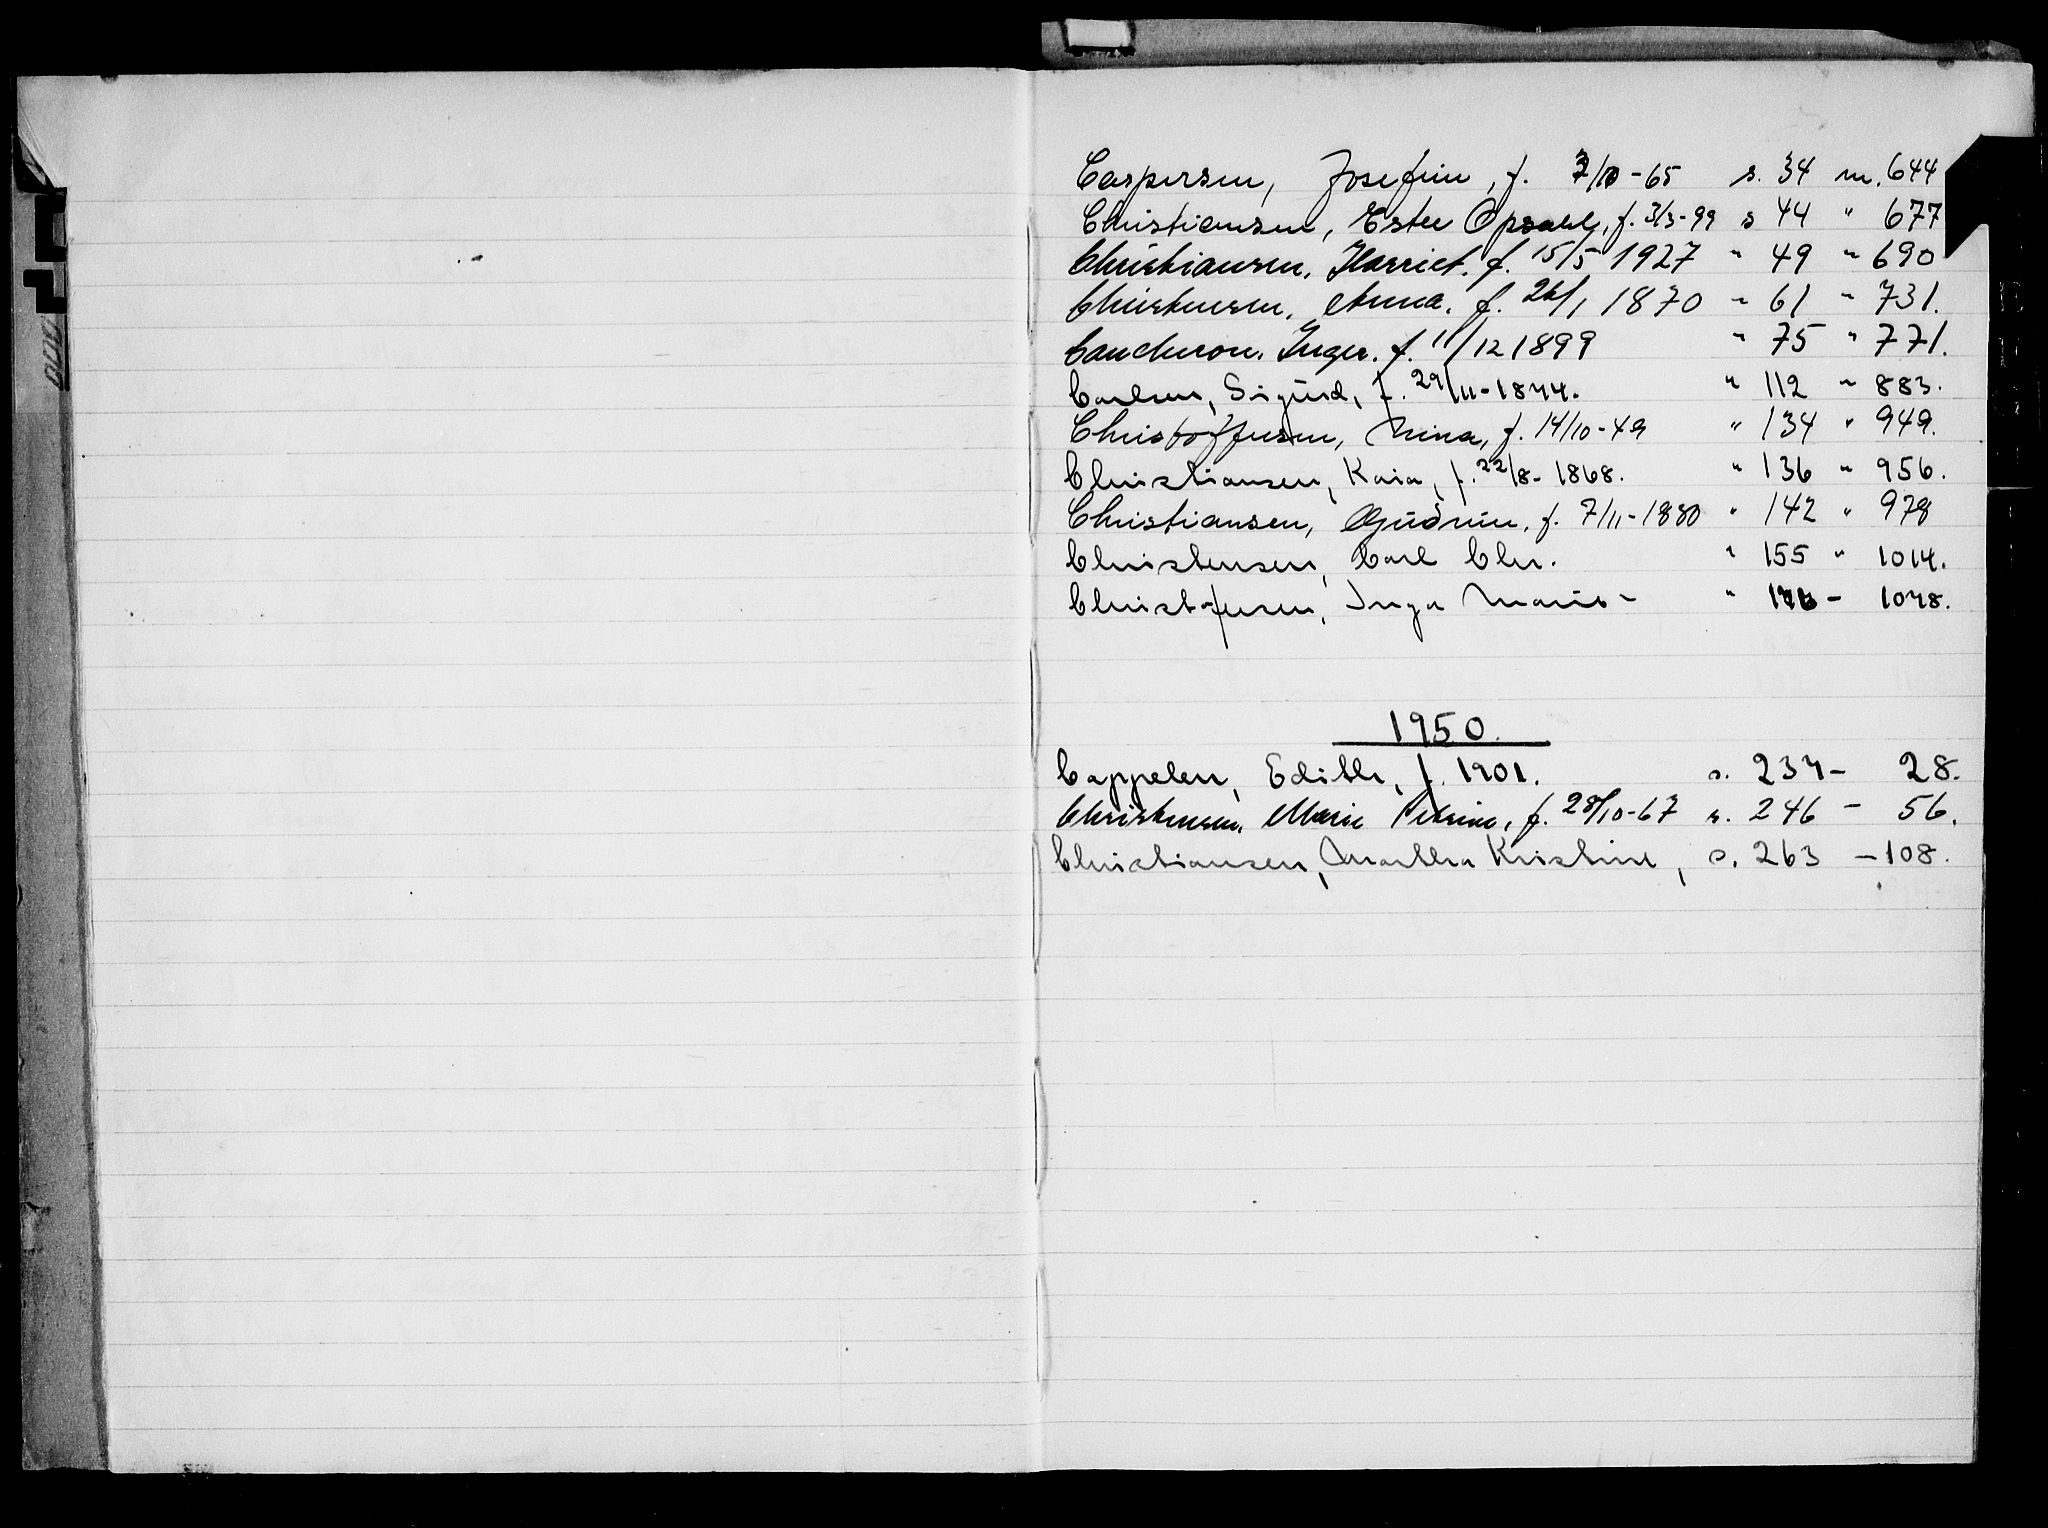 Caspersen, Josefine, f. 7/10-65 s. 34 nr. 644
Christiansen, Ester Opsahl, f. 3/3-99 s 44 " 677
Christiansen, Harriet. f. 15/5 1927 " 49 " 690
Christensen, Anna. f. 26/1 1870 " 61 " 731.
Caucheron, Inger. f. 11/12 1899 " 75 " 771.
Carlsen, Sigurd, f. 29/11-1874. " 112 " 883.
Christoffersen, Nina, f. 14/10-49 " 134 " 949.
Christiansen, Kaia, f. 22/8-1868. " 136 " 956.
Christiansen, Gudrun, f. 7/11-1880 " 142 " 978
Christensen, Carl Chr. " 155 " 1014.
Christofersen, Inga Marie - " - 1078.
1950.
Cappelen, Edith, f. 1901. s. 237 - 28.
Christensen, Marie Petrine, f. 28/10-67 s. 246 - 56.
Christiansen, Martha Kristine, s. 263 - 108.